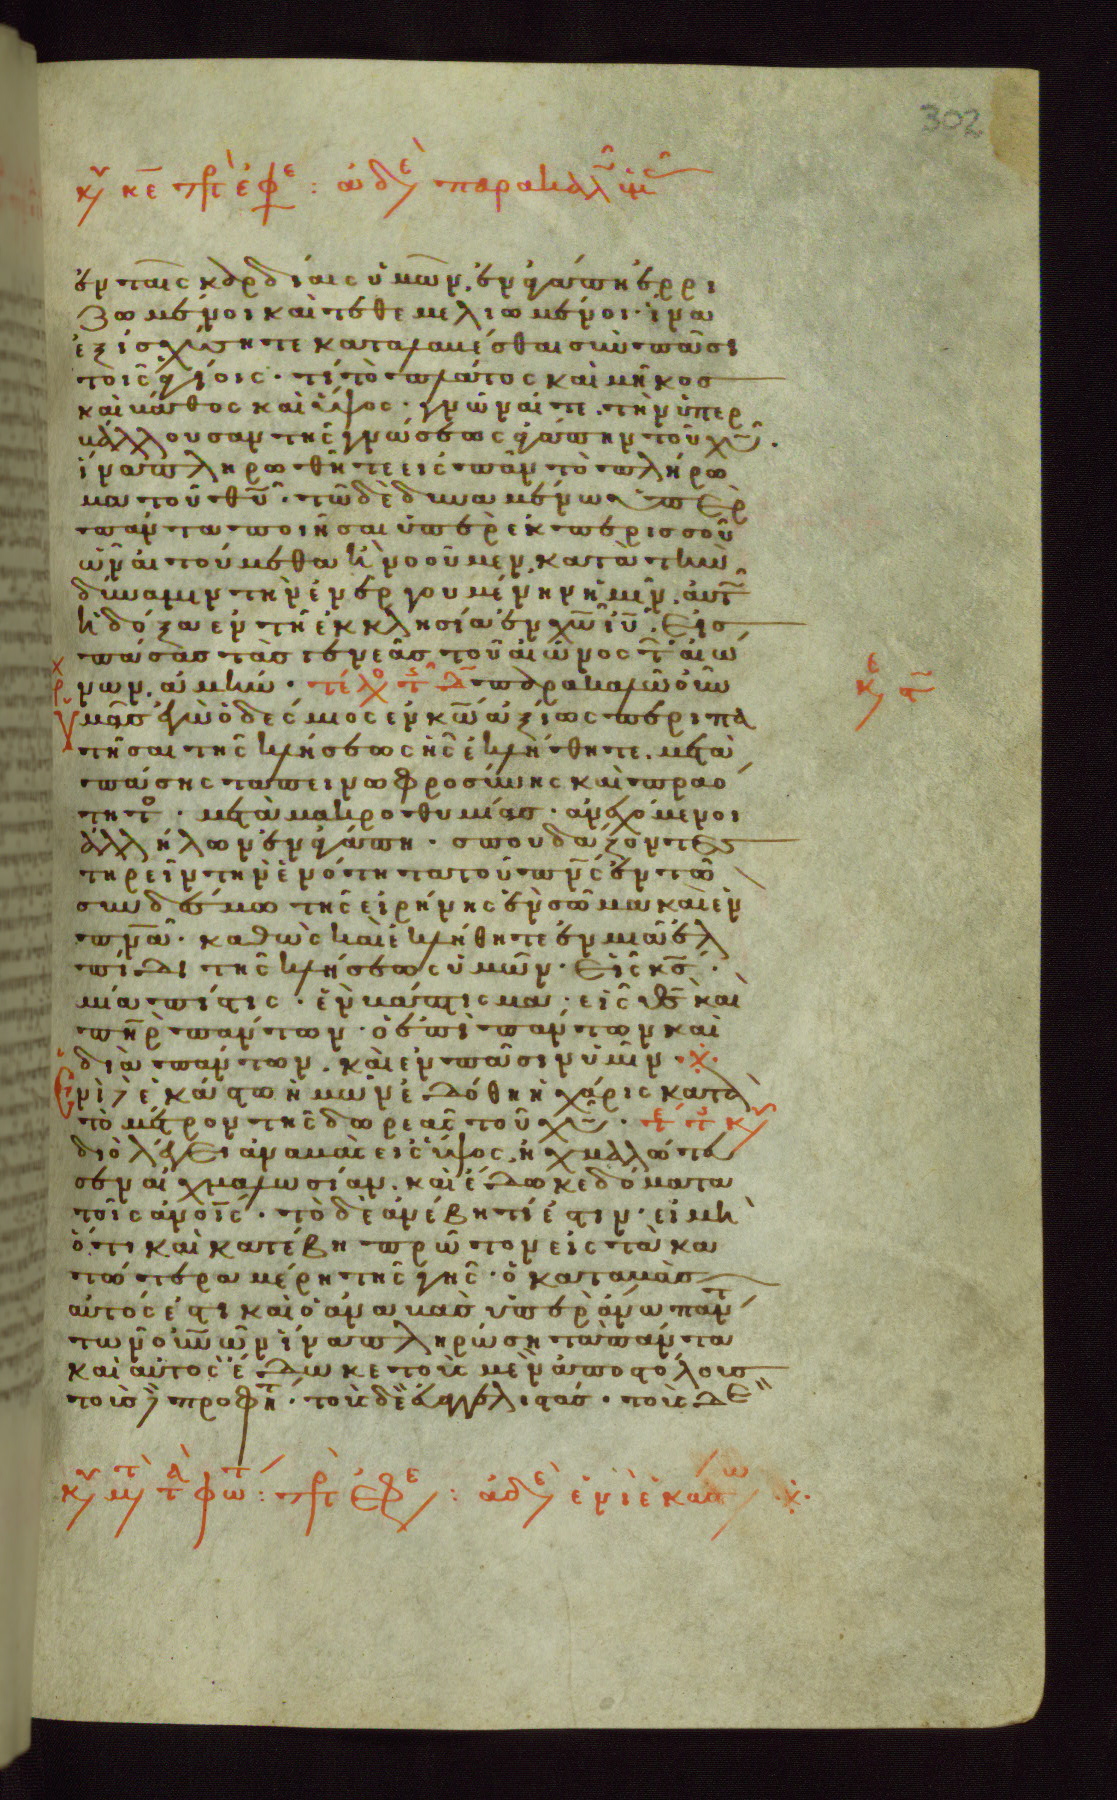 302
κυ κε πρ εφε : αδε παρακαλ υμ
ἐν ταῖς καρδίαις ὑμῶν. ἐν ἀγάπη ἐρρι
ζωμένοι καὶ τεθεμελιωμένοι. ἵνα
ἐξισχύσητε καταλαμέσθαι σὺν πᾶσι
τοῖς ἁγίοις. τί τὸ πλάτος καὶ μῆκος
καὶ βάθος καὶ ὕψος. γνῶναί τε. τὴν ὑπερ
βάλλουσαν τῆς γνώσεως ἀγάπην τοῦ χυ.
ἵνα πληρωθῆτε εἰς πᾶν τὸ πλήρω
μα τοῦ θυ. τῶ δὲ δυναμένω ὑπὲρ
πάντα ποιῆσαι ὑπὲρ ἐκ περισσοῦ
ὧν αἰτούμεθα ἢ νοοῦμεν. κατὰ τὴν
δύναμιν τὴν ἐνεργουμένην ἡμῖν. αὐτ
ἡ δόξα ἐν τῆ ἐκκλησία ἐν χω ιυ. εἰς
πάσας τὰς γενεὰς τοῦ αἰῶνος τ αἰώ
νων. ἀμήν. τέλο τ Δ παρακαλῶ οὖν
ὑμᾶς ἐγὼ ὁ δέσμιος ἐν κω ἀξίως περιπα
τῆσαι τῆς κλήσεως ἧς ἐκλήθητε. μετὰ
πάσης ταπεινωφροσύνης καὶ πραό
τητο. μετὰ μακροθυμίας. ἀνεχόμενοι
ἀλλήλων ἐν ἀγάπη. σπουδάζοντες
τηρεῖν τὴν ἑνότητα τοῦ πνς ἐν τῶ
συνδέσμω τῆς εἰρήνης ἓν σῶμα καὶ ἓν
πνα. καθὼς καὶ ἐκλήθητε ἐν μιᾶ ἐλ
πίδι τῆς κλήσεως ὑμῶν. εἷς κς.
μία πίστις. ἓν βάπτισμα. εἷς θς καὶ
πηρ πάντων. ὁ ἐπὶ πάντων καὶ
διὰ πάντων. καὶ ἐν πᾶσιν ὑμῖν
ἑνὶ ἑκάστω ἡμῶν ἐδόθη ἡ χάρις κατὰ
τὸ μέτρον τῆς δωρεᾶς τοῦ χυ. τε τ κυ
διὸ λέγει ἀναβὰς εἰς ὕψος. ἠχμαλώτευ
σεν αἰχμαλωσίαν. καὶ ἔδωκε δόματα
τοῖς ἀνοις. τὸ δὲ ἀνέβη τί ἐστιν. εἰ μὴ
ὅτι καὶ κατέβη πρῶτον εἰς τὰ κα
τώτερα μέρη τῆς γῆς. ὁ καταβὰς
αὐτός ἐστι καὶ ὁ ἀναβὰς ὑπεράνω πάντ
των τῶν οὐνῶν ἵνα πληρώση τὰ πάντα
καὶ αὐτὸς ἔδωκε τοὺς μὲν ἀποστόλους
τοὺς δ προφητ. τοὺς δὲ εὐαγγελιστάς. τοὺς δὲ
κυ μ τ φω : πρ εφε : αδε ἑνὶ ἑκάστω